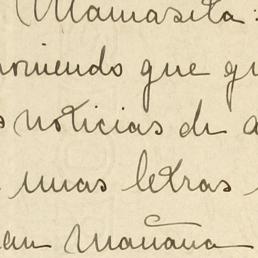 Mamasita:
poniendo que
noticias de
unas letras
mañana